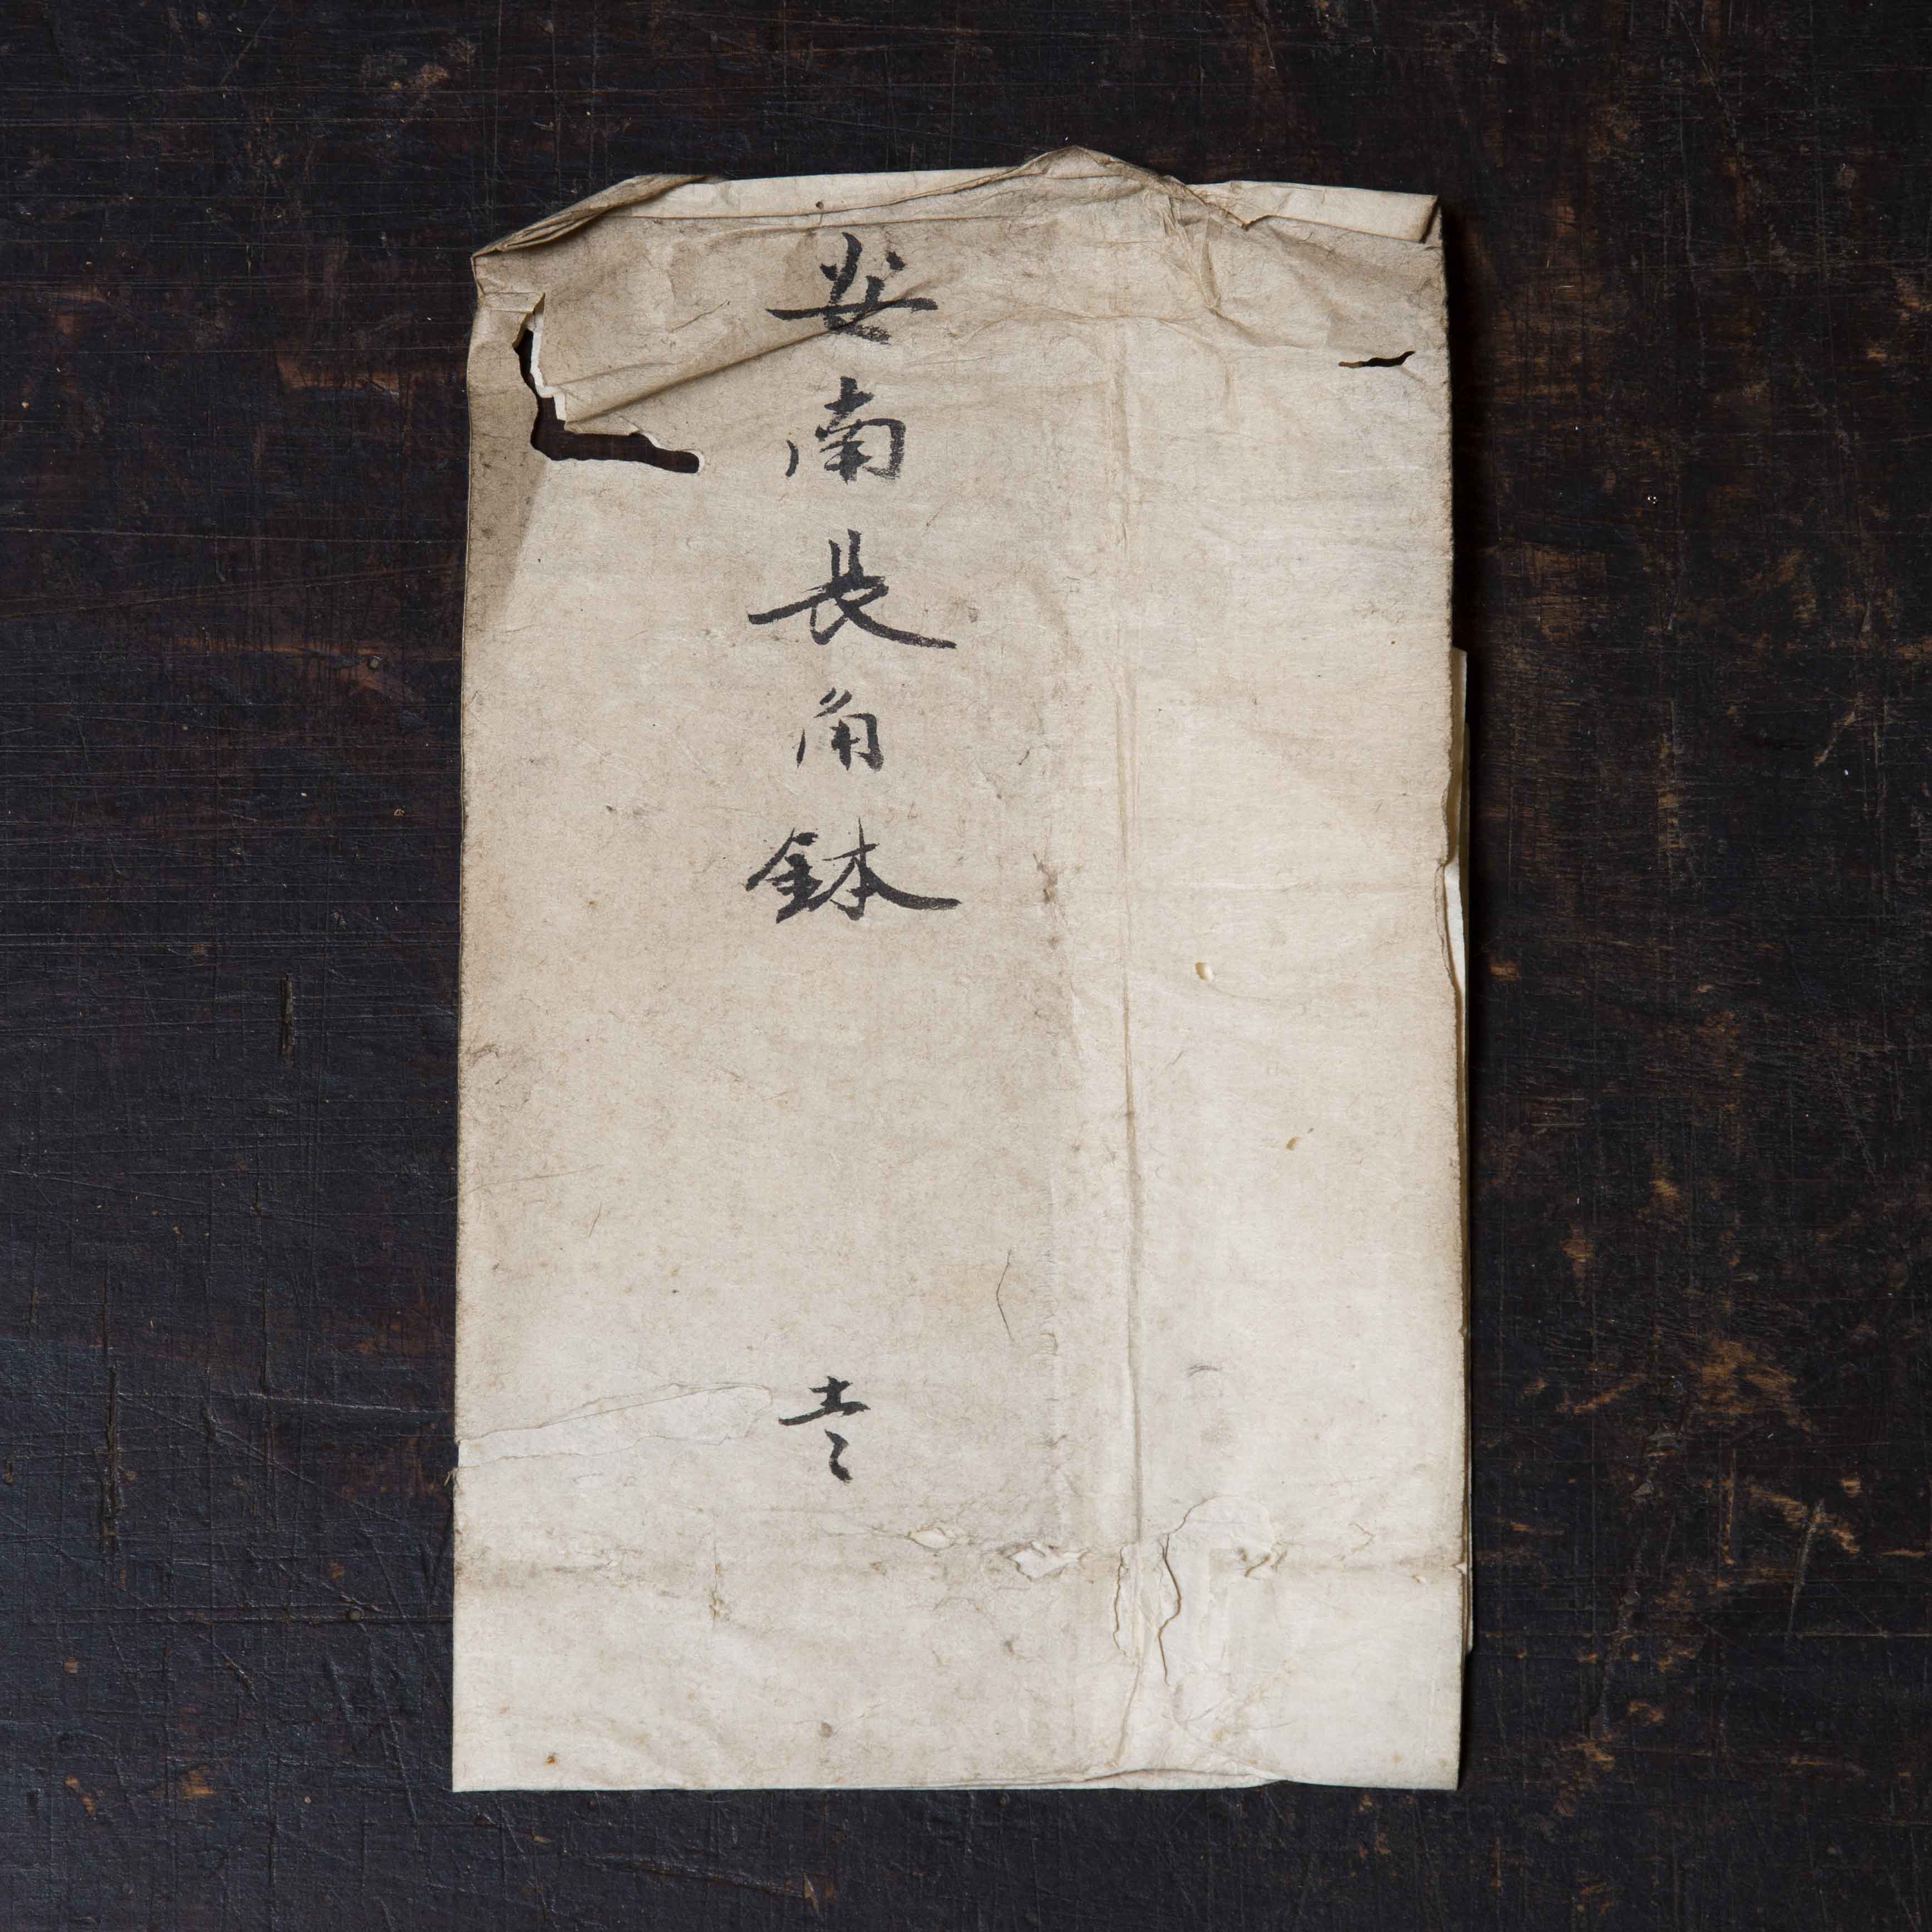 安南長角鉢
壱